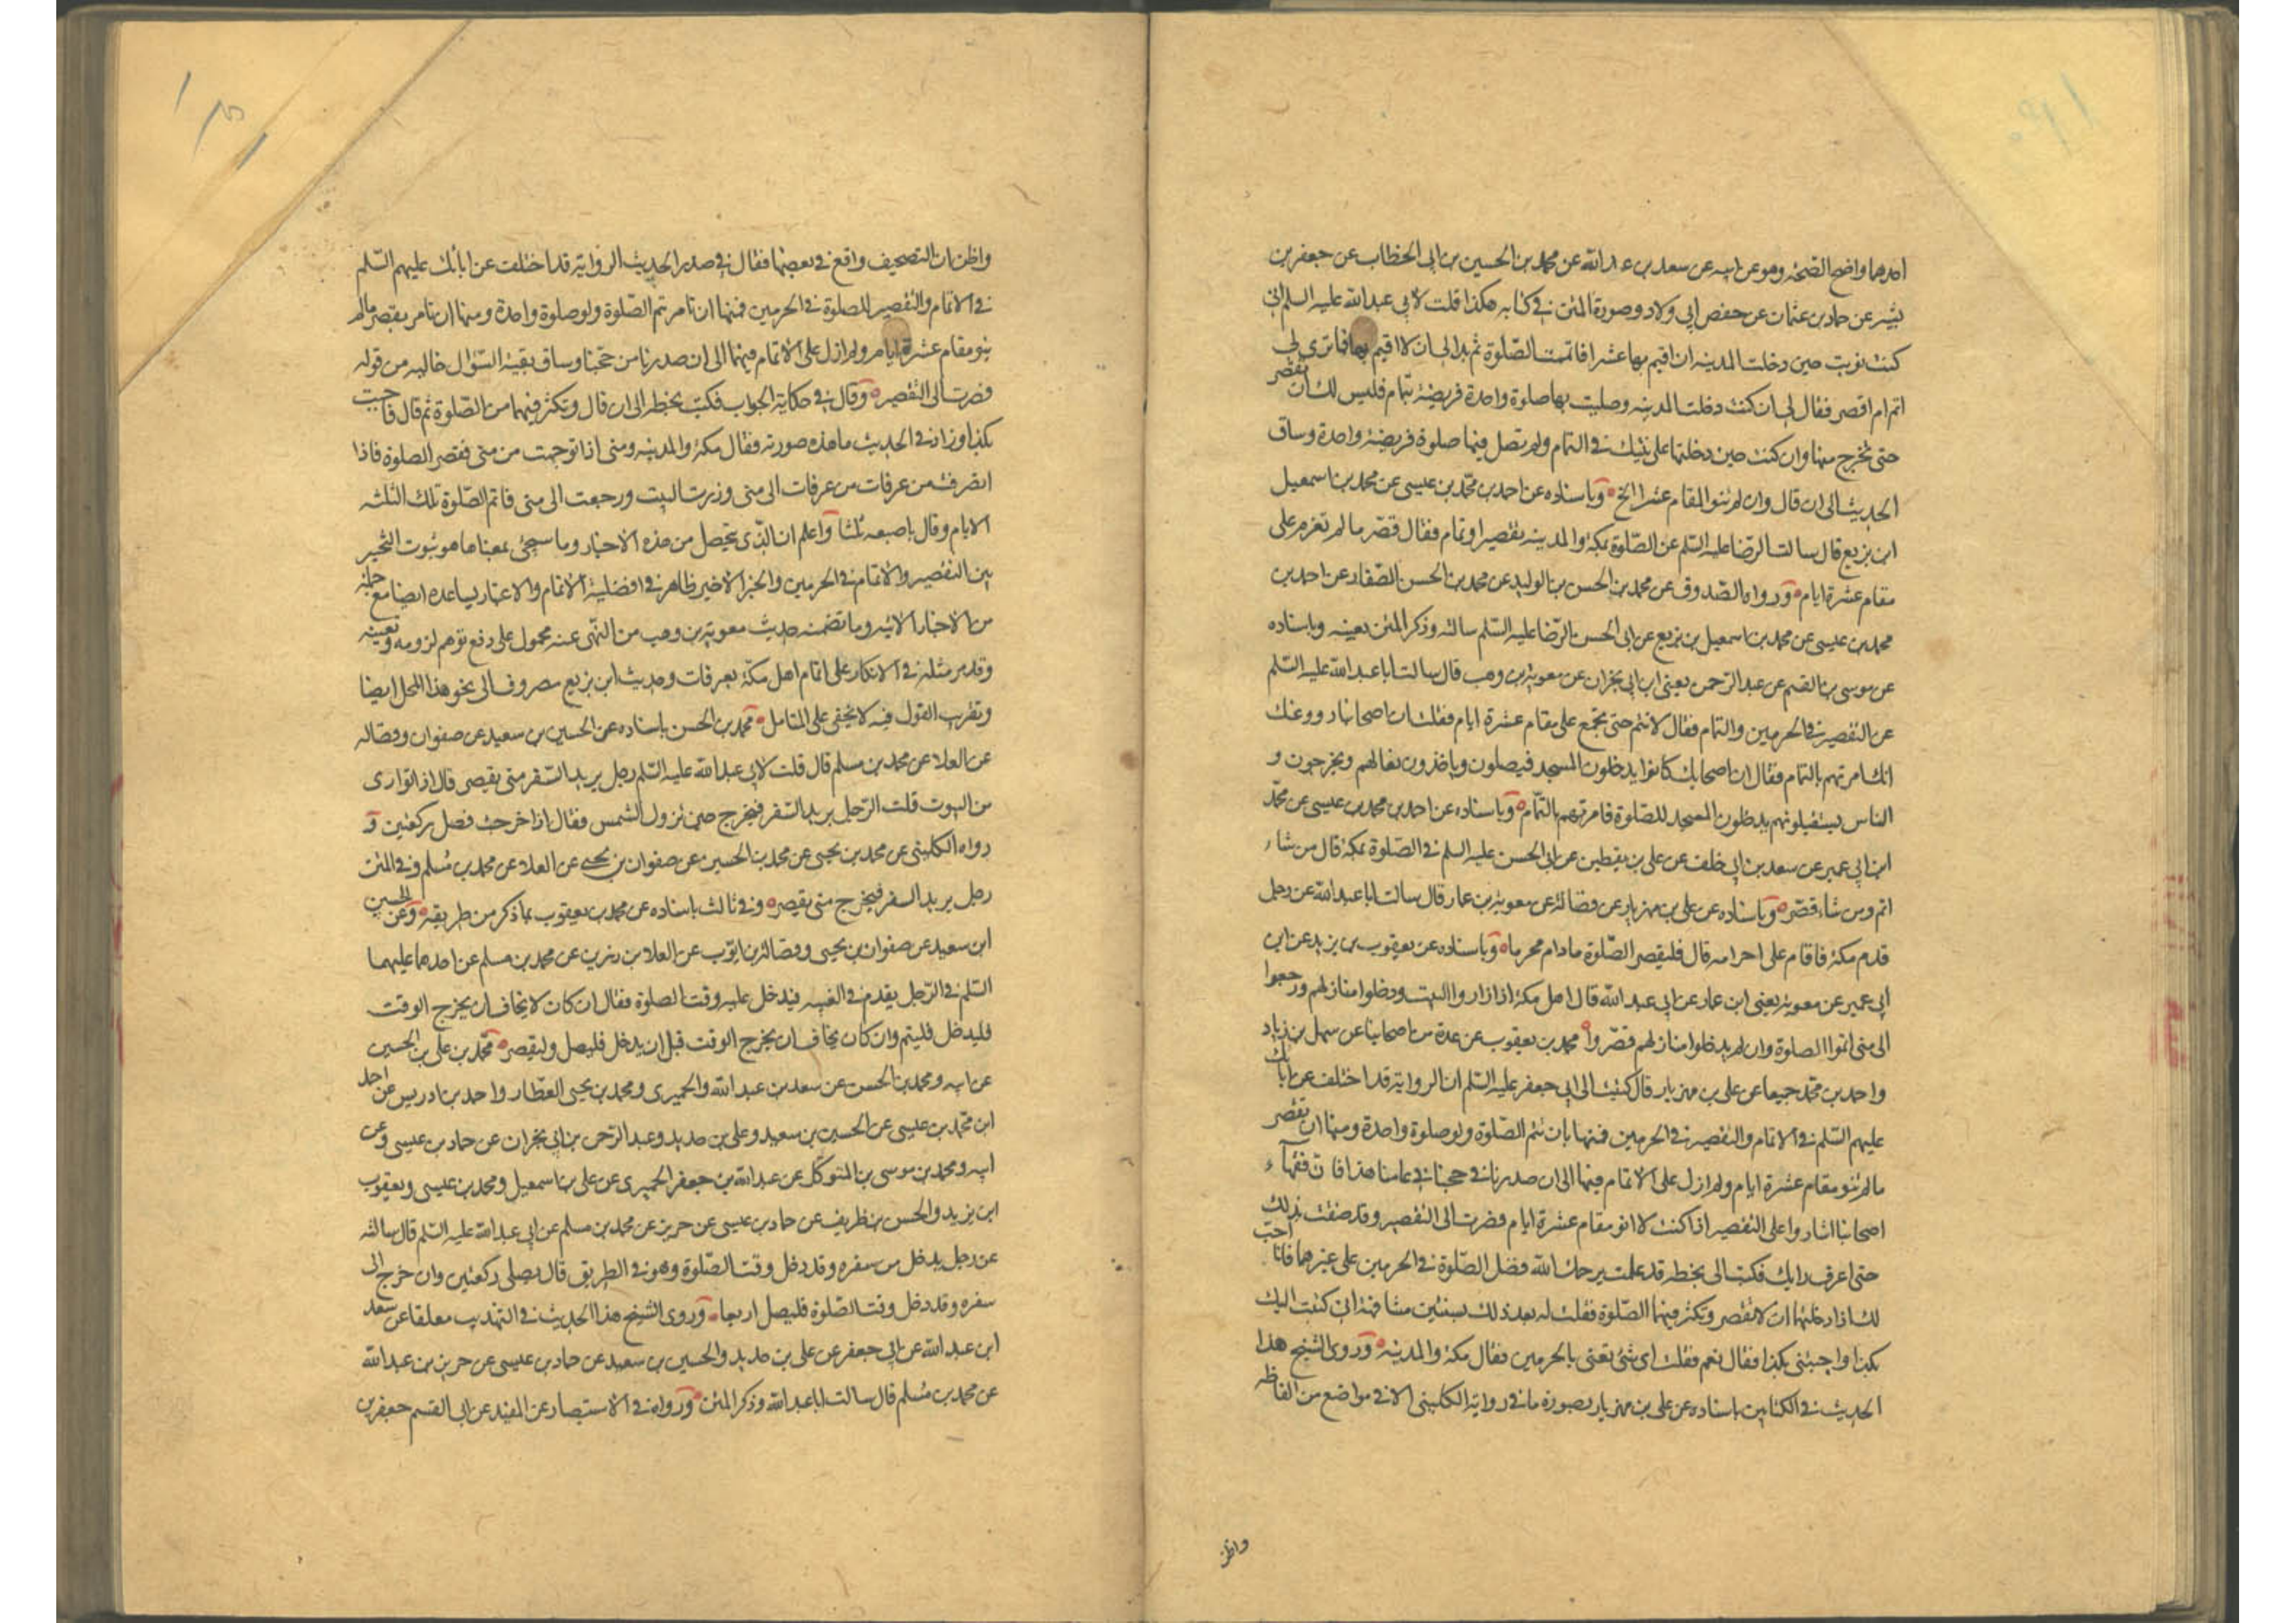 احدهما واضح الصحة وهو عن ابيه عن سعد بن عبد الله عن محمد بن الحسين بن ابى الخطاب عن جعفر بن
بشير عن حماد بن عثمان عن حفص ابي ولاد وصورة المتن في كتابه هكذا قلت لابي عبد الله عليه السلم انى
كنت نويت حين دخلت المدينه ان اقيم بها عشرا فاتممت الصلوة ثم بدا لى ان لا اقيم بها فما ترى لى
اتم ام اقصر فقال لى ان كنت دخلت المدينه وصليت بها صلوة واحدة فريضة بتمام فليس لك ان تقصر
حتى تخرج منها وان كنت حين دخلتها على نيتك في التمام ولم تصل فيها صلوة فريضة واحدة وساق
الحديث الى ان قال وان لم تنو المقام عشرا الخ وباسناده عن احمد بن محمد بن عيسى عن محمد بن اسمعيل
ابن بزيع قال سالت الرضا عليه السلم عن الصلوة بمكة والمدينه بتقصير او تمام فقال قصر ما لم تعزم على
مقام عشرة ايام ورواه الصدوق عن محمد بن الحسن بن الوليد عن محمد بن الحسن الصفار عن احمد بن
محمد بن عيسى عن محمد بن اسمعيل بن بزيع عن ابى الحسن الرضا عليه السلم سالته وذكر المتن بعينه وباسناده
عن موسى بن القسم عن عبد الرحمن يعنى ابن ابى نجران عن معوية بن وهب قال سالت ابا عبد الله عليه السلم
عن التقصير في الحرمين والتمام فقال لا تتم حتى تجمع على مقام عشرة ايام فقلت ان اصحابنا رووا عنك
انك امرتهم بالتمام فقال ان اصحابك كانوا يدخلون المسجد فيصلون وياخذون نعالهم ويخرجون و
الناس يستقبلونهم يدخلون المسجد للصلوة فامرتهم بالتمام وباسناده عن احمد بن محمد بن عيسى عن محمد
ابن ابي عمير عن سعد بن ابى خلف عن على بن يقطين عن ابى الحسن عليه السلم في الصلوة بمكة قال من شاء
اتم ومن شاء قصر وباسناده عن على بن مهزيار عن فضالة عن معوية بن عمار قال سالت ابا عبد الله عن رجل
قدم مكة فاقام على احرامه قال فليقصر الصلوة مادام محرما وباسناده عن يعقوب بن يزيد عن ابن
ابي عمير عن معوية يعنى ابن عمار عن ابي عبد الله قال اهل مكة اذا زاروا البيت ودخلوا منازلهم ورجعوا
الى منى اتموا الصلوة وان لم يدخلوا منازلهم قصروا محمد بن يعقوب عن عدة من اصحابنا عن سهل بن زياد
واحمد بن محمد جميعا عن على بن مهزيار قال كتبت الى ابي جعفر عليه السلم ان الرواية قد اختلف عن ابائك
عليهم السلم في الاتمام والتقصير في الحرمين فمنها بان تتم الصلوة ولو صلوة واحدة ومنها ان تقصر
ما لم تنو مقام عشرة ايام ولم ازل على الاتمام فيها الى ان صدرنا في حجنا في عامنا هذا فان فقهاء
اصحابنا اشاروا على التقصير اذا كنت لا انو مقام عشرة ايام فصرت الى التقصير وقد ضقت بذلك
حتى اعرف رايك فكتب الى بخطه قد علمت يرحمك الله فضل الصلوة في الحرمين على غيرهما فانا احب
لك اذا دخلتهما ان لا تقصر وتكثر فيهما الصلوة فقلت له بعد ذلك بسنتين مشافهة انى كتبت اليك
بكذا واجبتنى بكذا فقال نعم فقلت اى شئ تعنى بالحرمين فقال مكة والمدينه وروى الشيخ هذا
الحديث في الكتابين باسناده عن على بن مهزيار بصورة ما في رواية الكلينى الا في مواضع من الفاظه
واظن
واظن ان التصحيف واقع في بعضها فقال في صدر الحديث الرواية قد اختلفت عن ابائك عليهم السلم
في الاتمام والتقصير للصلوة في الحرمين فمنها ان تامر تتم الصلوة ولو صلوة واحدة ومنها ان تامر بقصر ما لم
ينو مقام عشرة ايام ولم ازل على الاتمام فيهما الى ان صدرنا من حجنا وساق بقية السؤال خاليه من قوله
فصرت الى التقصير وقال في حكاية الجواب فكتب بخطه الى ان قال وتكثر فيهما من الصلوة ثم قال فاجبت
بكذا وزاد في الحديث ما هذه صورته فقال مكة والمدينه ومنى اذا توجهت من منى فقصر الصلوة فاذا
انصرفت من عرفات من عرفات الى منى وزرت البيت ورجعت الى منى فاتم الصلوة تلك الثلثه
الايام وقال باصبعه ثلثا واعلم ان الذى تحصل من هذه الاخبار وما سيجئ بمعناها هو ثبوت التخير
بين التقصير والاتمام في الحرمين والخبر الاخير ظاهر في افضلية الاتمام والاعتبار يساعده ايضا مع جملة
من الاخبار الاتيه وما تضمنه حديث معوية بن وهب من النهى عنه محمول على دفع توهم لزومه وتعينه
وقد مر مثله في الانكار على اتمام اهل مكة بعرفات وحديث ابن بزيع مصروف الى نحو هذا المحل ايضا
وتقريب القول فيه لا يخفى على المتامل محمد بن الحسن باسناده عن الحسين بن سعيد عن صفوان وفضاله
عن العلا عن محمد بن مسلم قال قلت لابي عبد الله عليه السلم رجل يريد السفر متى يقصر قال اذا توارى
من البيوت قلت الرجل يريد السفر فيخرج حين تزول الشمس فقال اذا خرجت فصل ركعتين و
رواه الكلينى عن محمد بن يحيى عن محمد بن الحسين عن صفوان بن يحيى عن العلا عن محمد بن مسلم وفي المتن
رجل يريد السفر فيخرج متى يقصر وفي ثالث باسناده عن محمد بن يعقوب بما ذكر من طريقه وعن الحسين
ابن سعيد عن صفوان بن يحيى وفضالة بن ايوب عن العلا بن رزين عن محمد بن مسلم عن احدهما عليهما
السلم في الرجل يقدم في الغيبه فيدخل عليه وقت الصلوة فقال ان كان لا يخاف ان يخرج الوقت
فليدخل فليتم وان كان يخاف ان يخرج الوقت قبل ان يدخل فليصل وليقصر محمد بن على بن الحسين
عن ابيه ومحمد بن الحسن عن سعد بن عبد الله والحميرى ومحمد بن يحيى العطار واحمد بن ادريس عن احمد
ابن محمد بن عيسى عن الحسين بن سعيد وعلى بن حديد وعبد الرحمن بن ابي نجران عن حماد بن عيسى وعن
ابيه ومحمد بن موسى بن المتوكل عن عبد الله بن جعفر الحميرى عن على بن اسمعيل ومحمد بن عيسى ويعقوب
ابن يزيد والحسن بن ظريف عن حماد بن عيسى عن حريز عن محمد بن مسلم عن ابي عبد الله عليه السلم قال سالته
عن رجل يدخل من سفره وقد دخل وقت الصلوة وهو في الطريق قال يصلى ركعتين وان خرج الى
سفره وقد دخل وقت الصلوة فليصل اربعا وروى الشيخ هذا الحديث في التهذيب معلقا عن سعد
ابن عبد الله عن ابي جعفر عن على بن حديد والحسين بن سعيد عن حماد بن عيسى عن حريز بن عبد الله
عن محمد بن مسلم قال سالت ابا عبد الله وذكر المتن ورواه في الاستبصار عن المفيد عن ابى القسم جعفر بن